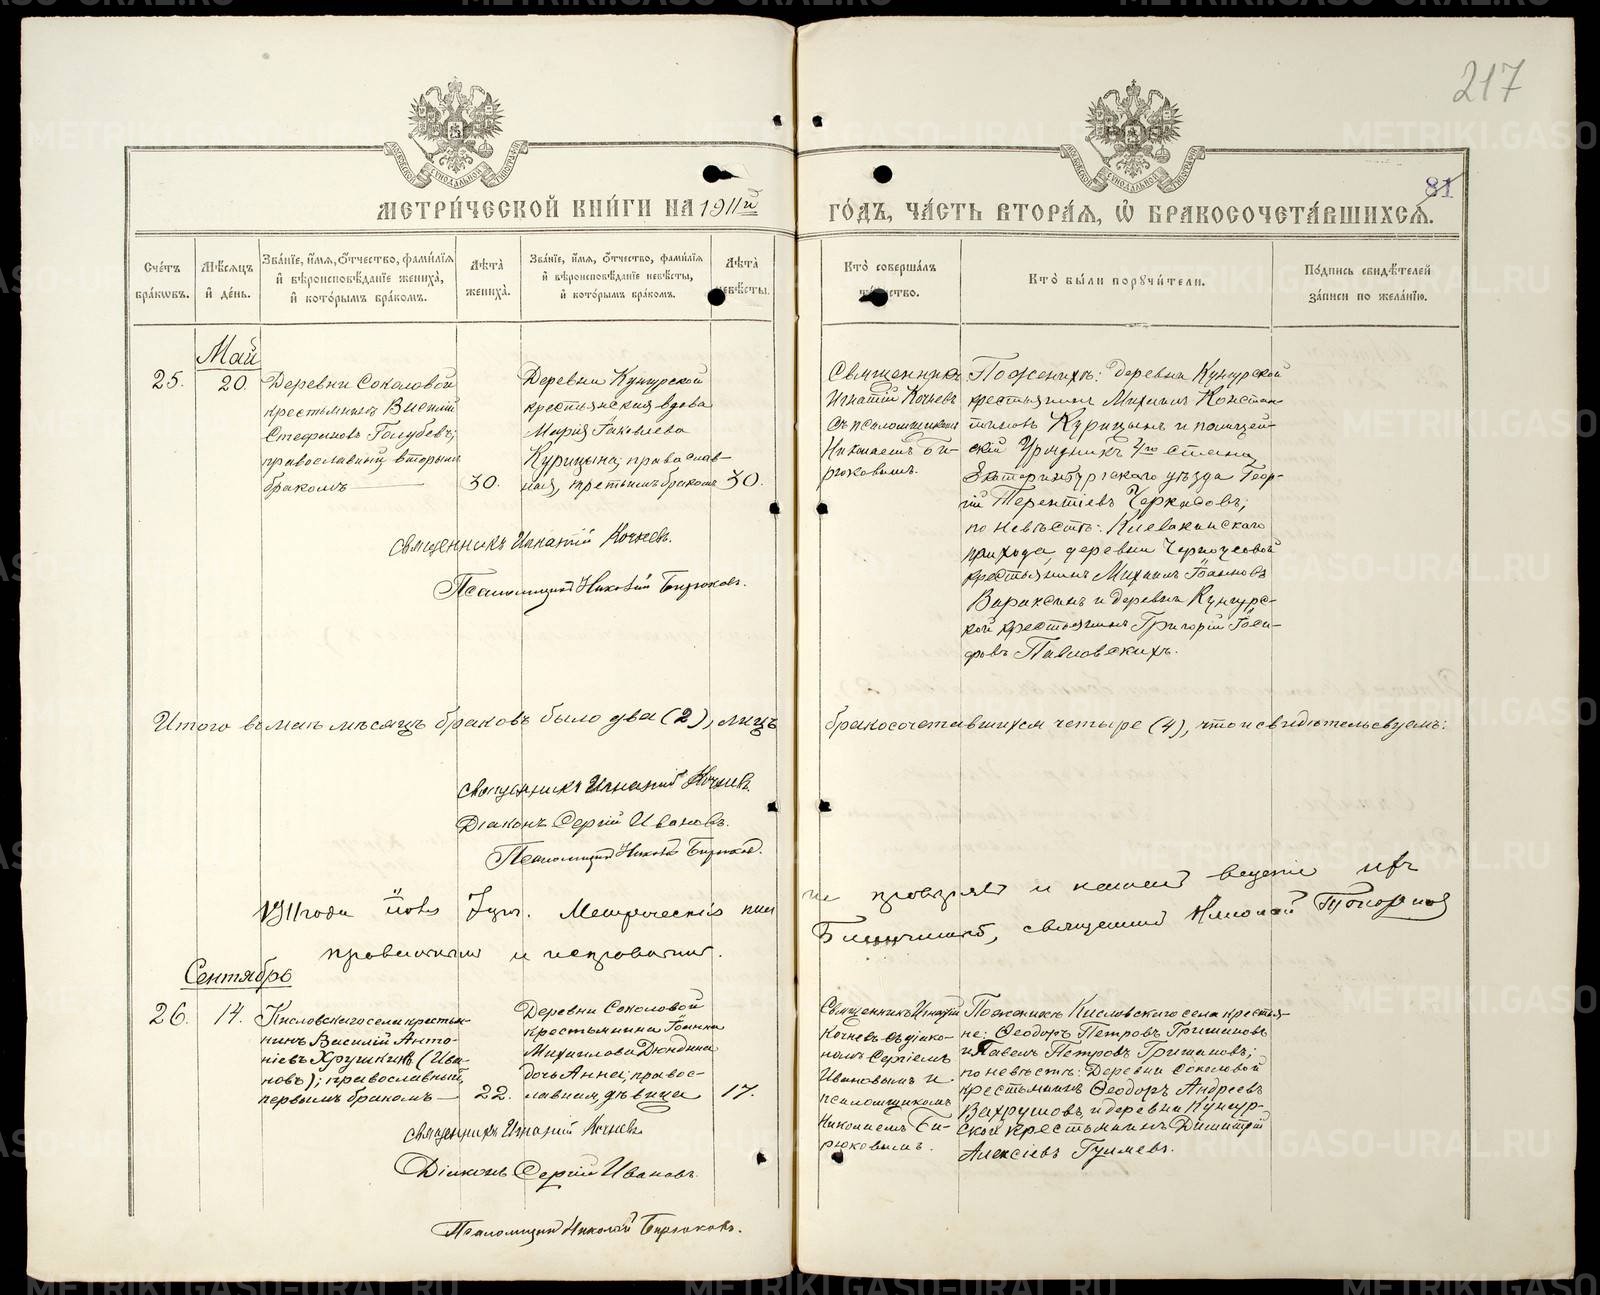 217
81
МЕТРИ́ЧЕСКОЙ КНИ́ГИ НА 1911й ГО́ДЪ, ЧА́СТЬ ВТОРА́Я, Ѡ҆ БРАКОСОЧЕТА́ВШИХСЯ.
Сче́тъ бра́ковъ.
Мѣ́сяцъ и҆ де́нь.
Зва́нїе, и҆́мя, ѻ҆́тчество, фами́лїя и҆ вѣроисповѣ́данїе жениха̀, и҆ кото́рымъ бра́комъ.
Лѣ́та жениха̀.
Зва́нїе, и҆́мя, ѻ҆́тчество, фами́лїя и҆ вѣроисповѣ́данїе невѣ́сты, и҆ кото́рымъ бра́комъ.
Лѣ́та невѣ́сты.
Кто̀ соверша́лъ
Кто̀ бы́ли порꙋчи́тели.
По́дпись свидѣ́телей за́писи по жела́нїю.
Май
25.
20
Деревни Соколовой
крестьянинъ Василій
Стефановъ Голубевъ;
православный, вторымъ
бракомъ
30.
Деревни Кунгурской
крестьянская вдова
Марія Іаковлева
Курицына; православ-
ная, третьимъ бракомъ
30.
Священникъ
Игнатій Кочневъ
съ псаломщикомъ
Николаемъ Би-
рюковымъ.
По женихѣ: деревни Кунгурской
крестьянинъ Михаилъ Констан-
тиновъ Курицынъ и полицей-
скій Урядникъ 4го стана
Екатеринбургскаго уѣзда Геор-
гій Терентіевъ Черкасовъ;
по невѣстѣ:
прихода, деревни Черноусовой
крестьянинъ Михаилъ Іоанновъ
Вараксинъ и деревни Кунгурс-
кой крестьянинъ Григорій Іоси-
фовъ Павловскихъ.
Священникъ Игнатій Кочневъ.
Псаломщикъ Николай Бирюковъ.
Итого въ маѣ мѣсяцѣ браковъ было два (2), лицъ бракосочетавшихся четыре (4), что и свидѣтельствуемъ:
Священникъ Игнатій Кочневъ.
Діаконъ Сергій Ивановъ.
Псаломщикъ Николай Бирюковъ.
1911 года
Метрическія
священникъ Николай Топорковъ
Сентябрь
26.
14.
Кисловскаго села крестья-
нинъ Василій Анто-
ніевъ Хрушкинъ (Ива-
новъ); православный,
первымъ бракомъ
22.
Деревни Соколовой
крестьянина Іоанна
Михаилова Дюндина
дочь Анна; правос-
лавная, дѣвица
17.
Священникъ Игнатій
Кочневъ съ діако-
номъ Сергіемъ
Ивановымъ и
псаломщикомъ
Николаемъ Би-
рюковымъ.
По женихѣ Кисловскаго села крестья-
не: Ѳеодоръ Петровъ Гришановъ
и Павелъ Петровъ Гришановъ;
по невѣстѣ: Деревни Соколовой
крестьянинъ Ѳеодоръ Андреевъ
Вахрушовъ, и деревни Кунгур-
ской крестьянинъ Димитрій
Алексіевъ Гуляевъ.
Священникъ Игнатій Кочневъ
Діаконъ Сергій Ивановъ.
Псаломщикъ Николай Бирюковъ.
METRIKI.GASO-URAL.RU